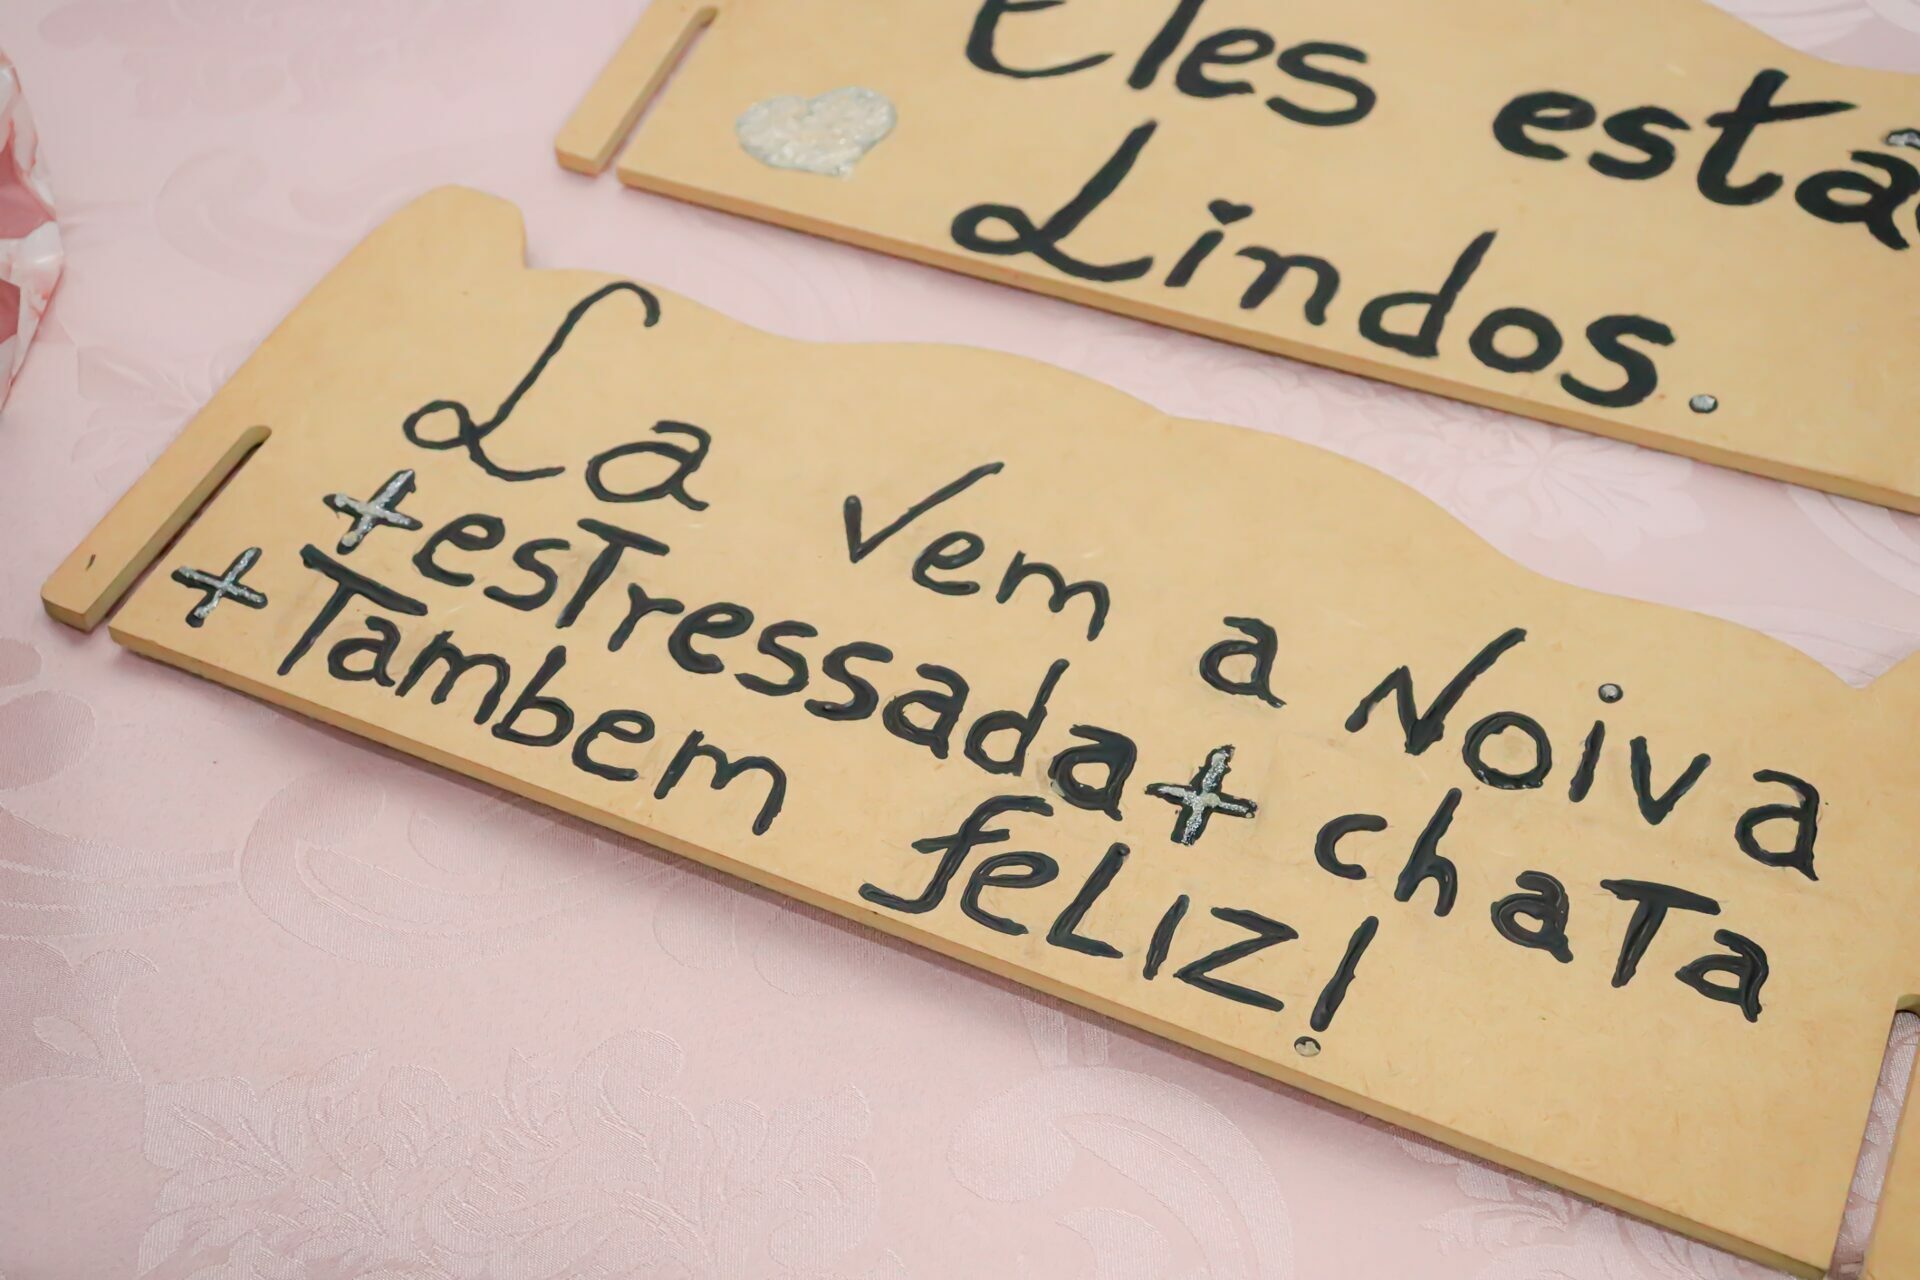 Eles estã
Lindos.
La vem a Noiva
+estressada+ chata
+Tambem feliz!